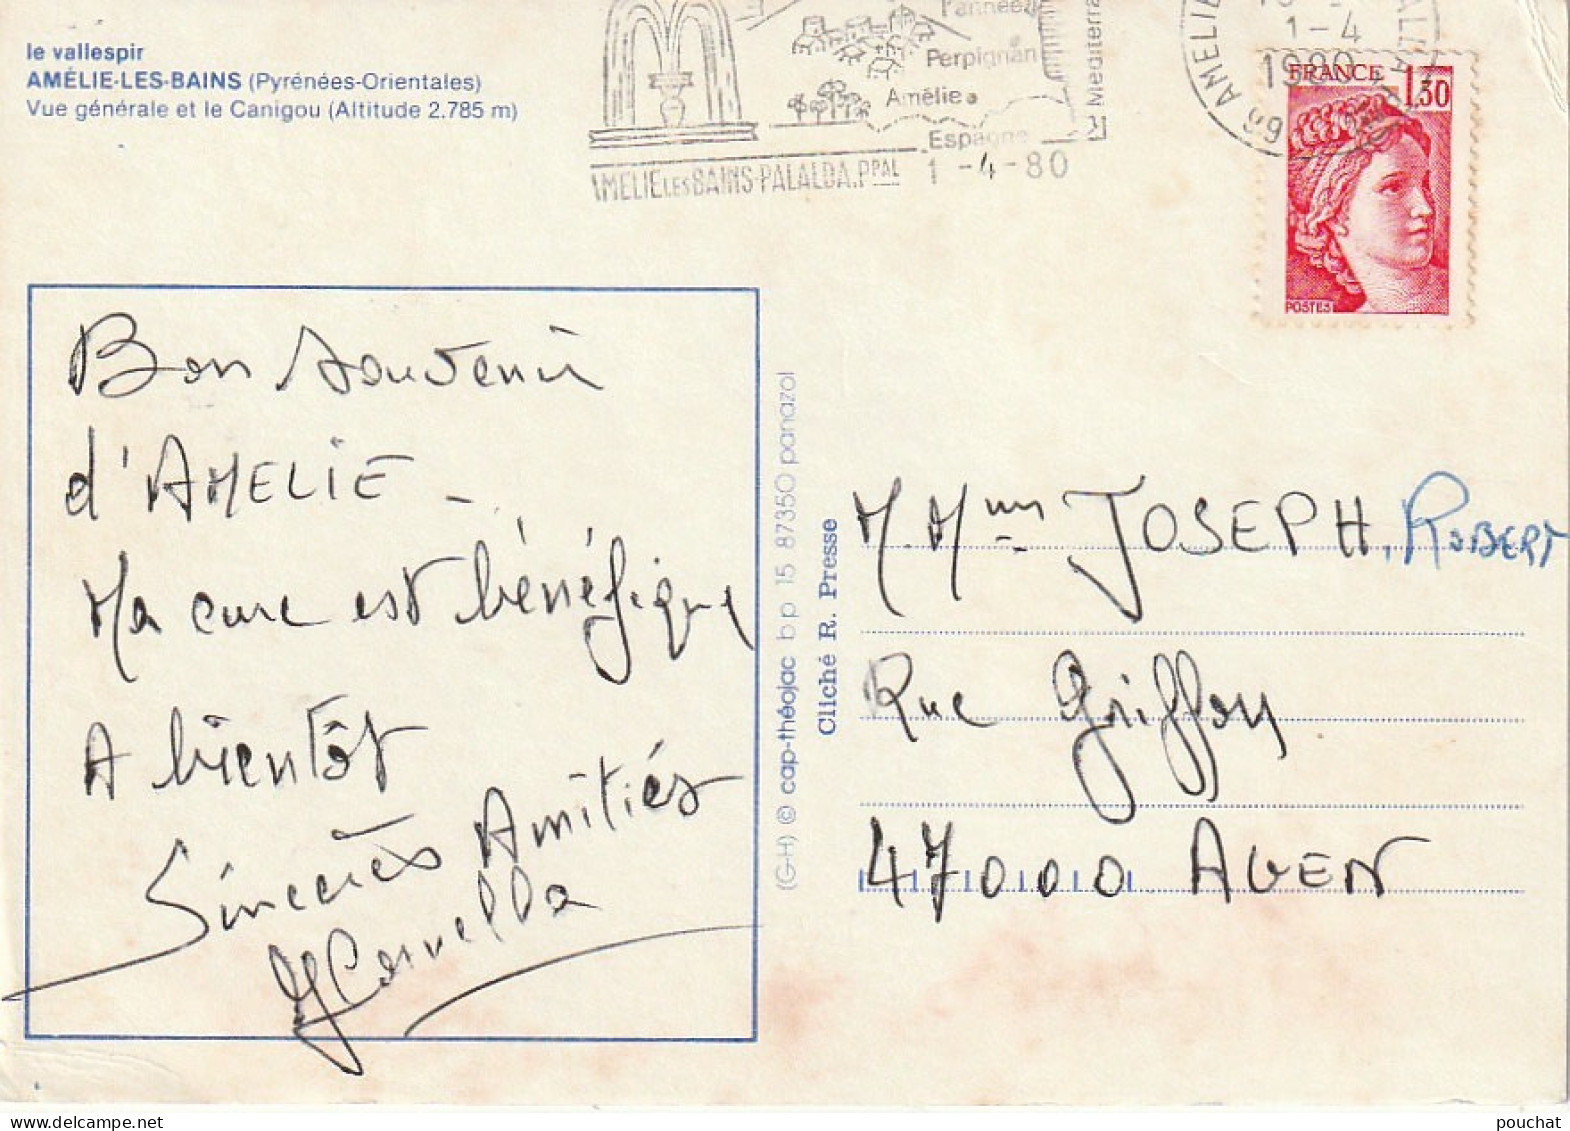 le vallespir
AMÉLIE-LES-BAINS (Pyrénées-Orientales)
Vue générale et le Canigou (Altitude 2.785 m)
l'année
Perpignan
Amélie
Espagne
Mediterra
AMELIE LES BAINS-PALALDA.PPAL 1-4-80
AMELIE
1-4
1980
66
FRANCE 1,30
POSTES
Bon souvenir
d'AMELIE -
Ma cure est bénéfique
A bientôt
Sincères Amitiés
(G-H) © cap-théojac bp 15 87350 panazol
Cliché R. Presse
M. Mme JOSEPH, ROBERT
Rue Griffon
47000 AGEN
pouchat
www.delcampe.net